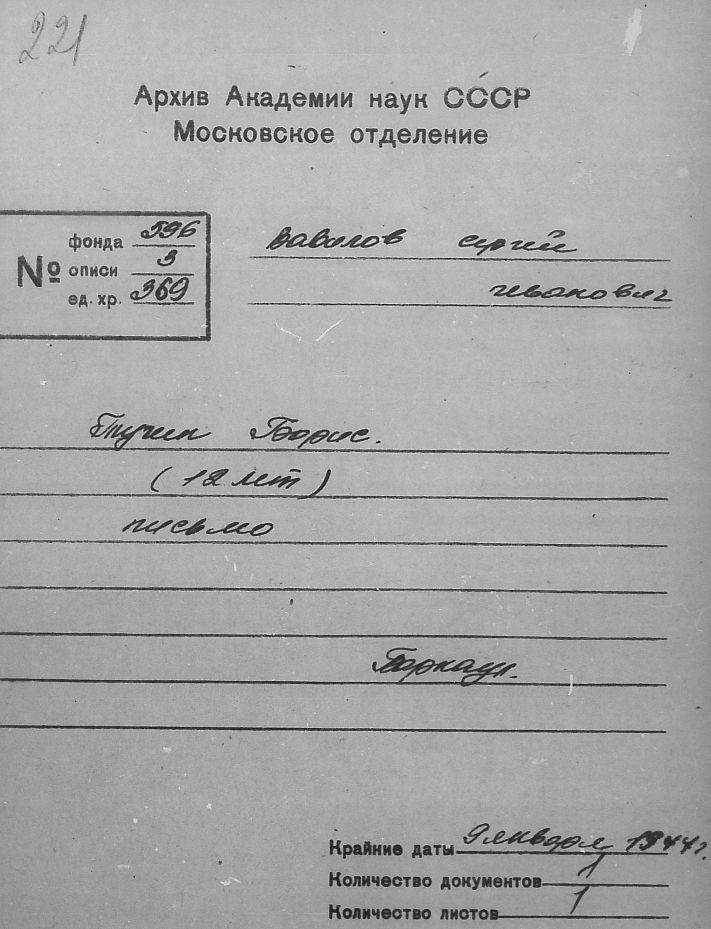 221
Архив Академии наук СССР
Московское отделение
№ фонда 596
описи 3
ед. хр. 369
Вавилов Сергей
Иванович
Борис.
(12 лет)
письмо
Барнаул.
Крайние даты 9 января 1944 г.
Количество документов 1
Количество листов 1